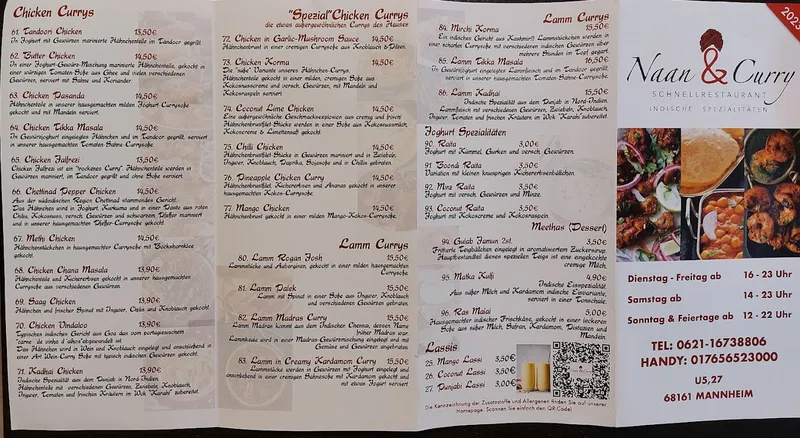 Chicken Currys
61. Tandoori Chicken 13,50€
In Joghurt mit Gewürzen marinierte Hähnchenteile im Tandoor gegrillt
62. Butter Chicken 14,50€
In einer Joghurt-Gewürz-Mischung marinierte Hähnchenteile, gekocht in
einer würzigen Tomaten-Soße aus Ghee und vielen verschiedenen
Gewürzen, serviert mit Sahne und Koriander
63. Chicken Pasanda 14,50€
Hähnchenteile in unserer hausgemachten milden Joghurt Currysoße
gekocht und mit Mandeln serviert.
64. Chicken Tikka Masala 14,50€
In Gewürzjoghurt eingelegtes Hähnchen und im Tandoor gegrillt, serviert
in unserer hausgemachten Tomaten Sahne Currysoße.
65. Chicken Jalfrezi 13,50€
Chicken Jalfrezi ist ein "trockenes Curry". Hähnchenteile werden in
Gewürzen mariniert, im Tandoor gegrillt und ohne Soße serviert.
66. Chettinad Pepper Chicken 14,50€
Aus der südindischen Region Chettinad stammendes Gericht.
Das Hähnchen wird in Joghurt Kurkuma und in einer Paste aus roten
Chilis, Kokosnuss, versch. Gewürzen und schwarzem Pfeffer mariniert
und in unserer hausgemachten Pfeffer Currysoße serviert.
67. Methi Chicken 14,50€
Hähnchenstücken in hausgemachter Currysoße mit Bockshornklee
gekocht.
68. Chicken Chana Masala 13,90€
Hähnchenteile und Kichererbsen gekocht in unserer hausgemachten
Currysoße.
69. Saag Chicken 13,90€
Hähnchen und frischer Spinat mit Ingwer, Chilis und Knoblauch gekocht.
70. Chicken Vindaloo 13,90€
Typisches indisches Gericht aus Goa das vom portugiesischem
Das Hähnchen wird in Wein und Knoblauch eingelegt und anschließend in
einer Art Wein-Curry Soße mit typisch indischen Gewürzen gekocht.
71. Kadhai Chicken 13,90€
Indische Spezialität aus dem Punjab in Nord-Indien.
Hähnchenteile mit verschiedenen Gewürzen, Zwiebeln, Knoblauch,
Ingwer, Tomaten und frischen Kräutern im Wok "Karahi" zubereitet.
"Spezial"Chicken Currys
die etwas außergewöhnlichen Currys des Hauses
72. Chicken in Garlic-Mushroom Sauce 14,50€
Hähnchenbrust in einer cremigen Currysoße aus Knoblauch & Pilzen.
73. Chicken Korma 14,50€
Die "süße" Variante unseres Hähnchen-Currys.
Hähnchenteile gekocht in einer milden, cremigen Soße aus
Kokosnusscreme und versch. Gewürzen, mit Mandeln und
Kokosraspeln serviert
74. Coconut Lime Chicken 14,50€
Eine außergewöhnliche Geschmacksexplosion aus cremig und frisch!
Hähnchenbrustfilet Stücke werden in einer Soße aus Kokosnussmilch,
Kokoscreme & Limettensaft gekocht.
75. Chilli Chicken 14,50€
Hähnchenbrustfilet Stücke in Gewürzen mariniert und in Zwiebeln,
Ingwer, Knoblauch, Paprika, Sojasoße und in Chilis gebraten.
76. Pineapple Chicken Curry 14,50€
Hähnchenbrustfilet, Kichererbsen und Ananas gekocht in unserer
hausgemachten Kokos-Currysoße.
77. Mango Chicken 14,50€
Hähnchenbrust gekocht in einer milden Mango-Kokos-Currysoße.
Lamm Currys
80. Lamm Rogan Josh 15,50€
Lammstücke und Auberginen, gekocht in einer milden hausgemachten
Currysoße.
81. Lamm Palek 15,50€
Lamm mit Spinat in einer Soße aus Ingwer, Knoblauch
und verschiedenen Gewürzen gebraten.
82. Lamm Madras Curry 15,50€
Lamm Madras kommt aus dem Indischen Chennai, dessen Name
früher Madras war.
Lammkaule wird in einer Madras Gewürzmischung eingelegt und mit
Gemüse und Gewürzen angebraten.
83. Lamm in Creamy Kardamom Curry 15,50€
Lammstücke werden in Gewürzen mit Joghurt eingelegt und
anschließend in einer cremigen Sahnesoße mit Kardamom gekocht und
mit etwas Joghurt serviert
Lamm Currys
84. Mirchi Korma 15,50€
Ein indisches Gericht aus Kashmir!!! Lammstückchen werden in
einer scharfen Currysoße mit verschiedenen indischen Gewürzen über
mehrere Stunden im Topf gegart.
85. Lamm Tikka Masala 16,50€
In Gewürzjoghurt eingelegtes Lammfleisch und im Tandoor gegrillt,
serviert in unserer hausgemachten Tomaten Sahne-Currysoße.
86. Lamm Kadhai 15,50€
Indische Spezialität aus dem Punjab in Nord-Indien.
Lammfleisch mit verschiedenen Gewürzen, Zwiebeln, Knoblauch,
Ingwer, Tomaten und frischen Kräutern im Wok "Karahi" zubereitet.
Joghurt Spezialitäten
90. Raita 3,00€
Joghurt mit Kümmel, Gurken und versch. Gewürzen.
91. Boondi Raita 3,50€
Variation mit kleinen knusprigen Kichererbsenbällchen.
92. Mint Raita 3,50€
Joghurt mit versch. Gewürzen und Minze.
93. Coconut Raita 3,50€
Joghurt mit Kokoscreme und Kokosraspeln.
Meethas (Dessert)
94. Gulab Jamun 2st. 3,50€
Frittierte Teigbällchen eingelegt in aromatisiertem Zuckersirup.
Hauptbestandteil dieses speziellen Teigs ist eine eingekochte
cremige Milch.
95. Matka Kulfi 4,90€
Indische Eisspezialität.
Aus süßer Milch und Kardamom indisches Eisvariante,
serviert in einer Tonschale.
96. Ras Malai 5,00€
Hausgemachter indischer Frischkäse, gekocht in einer leckeren
Soße aus süßer Milch, Safran, Kardamom, Pistazien und
Mandeln.
Lassis
25. Mango Lassi 3,50€
26. Coconut Lassi 3,50€
27. Punjabi Lassi 3,00€
Die Kennzeichnung der Zusatzstoffe und Allergenen finden Sie auf unserer
Homepage. Scannen Sie einfach den QR-Code!
2023
Naan & Curry
SCHNELLRESTAURANT
INDISCHE SPEZIALITÄTEN
Dienstag - Freitag ab 16 - 23 Uhr
Samstag ab 14 - 23 Uhr
Sonntag & Feiertage ab 12 - 22 Uhr
TEL: 0621-16738806
HANDY: 017656523000
U5,27
68161 MANNHEIM